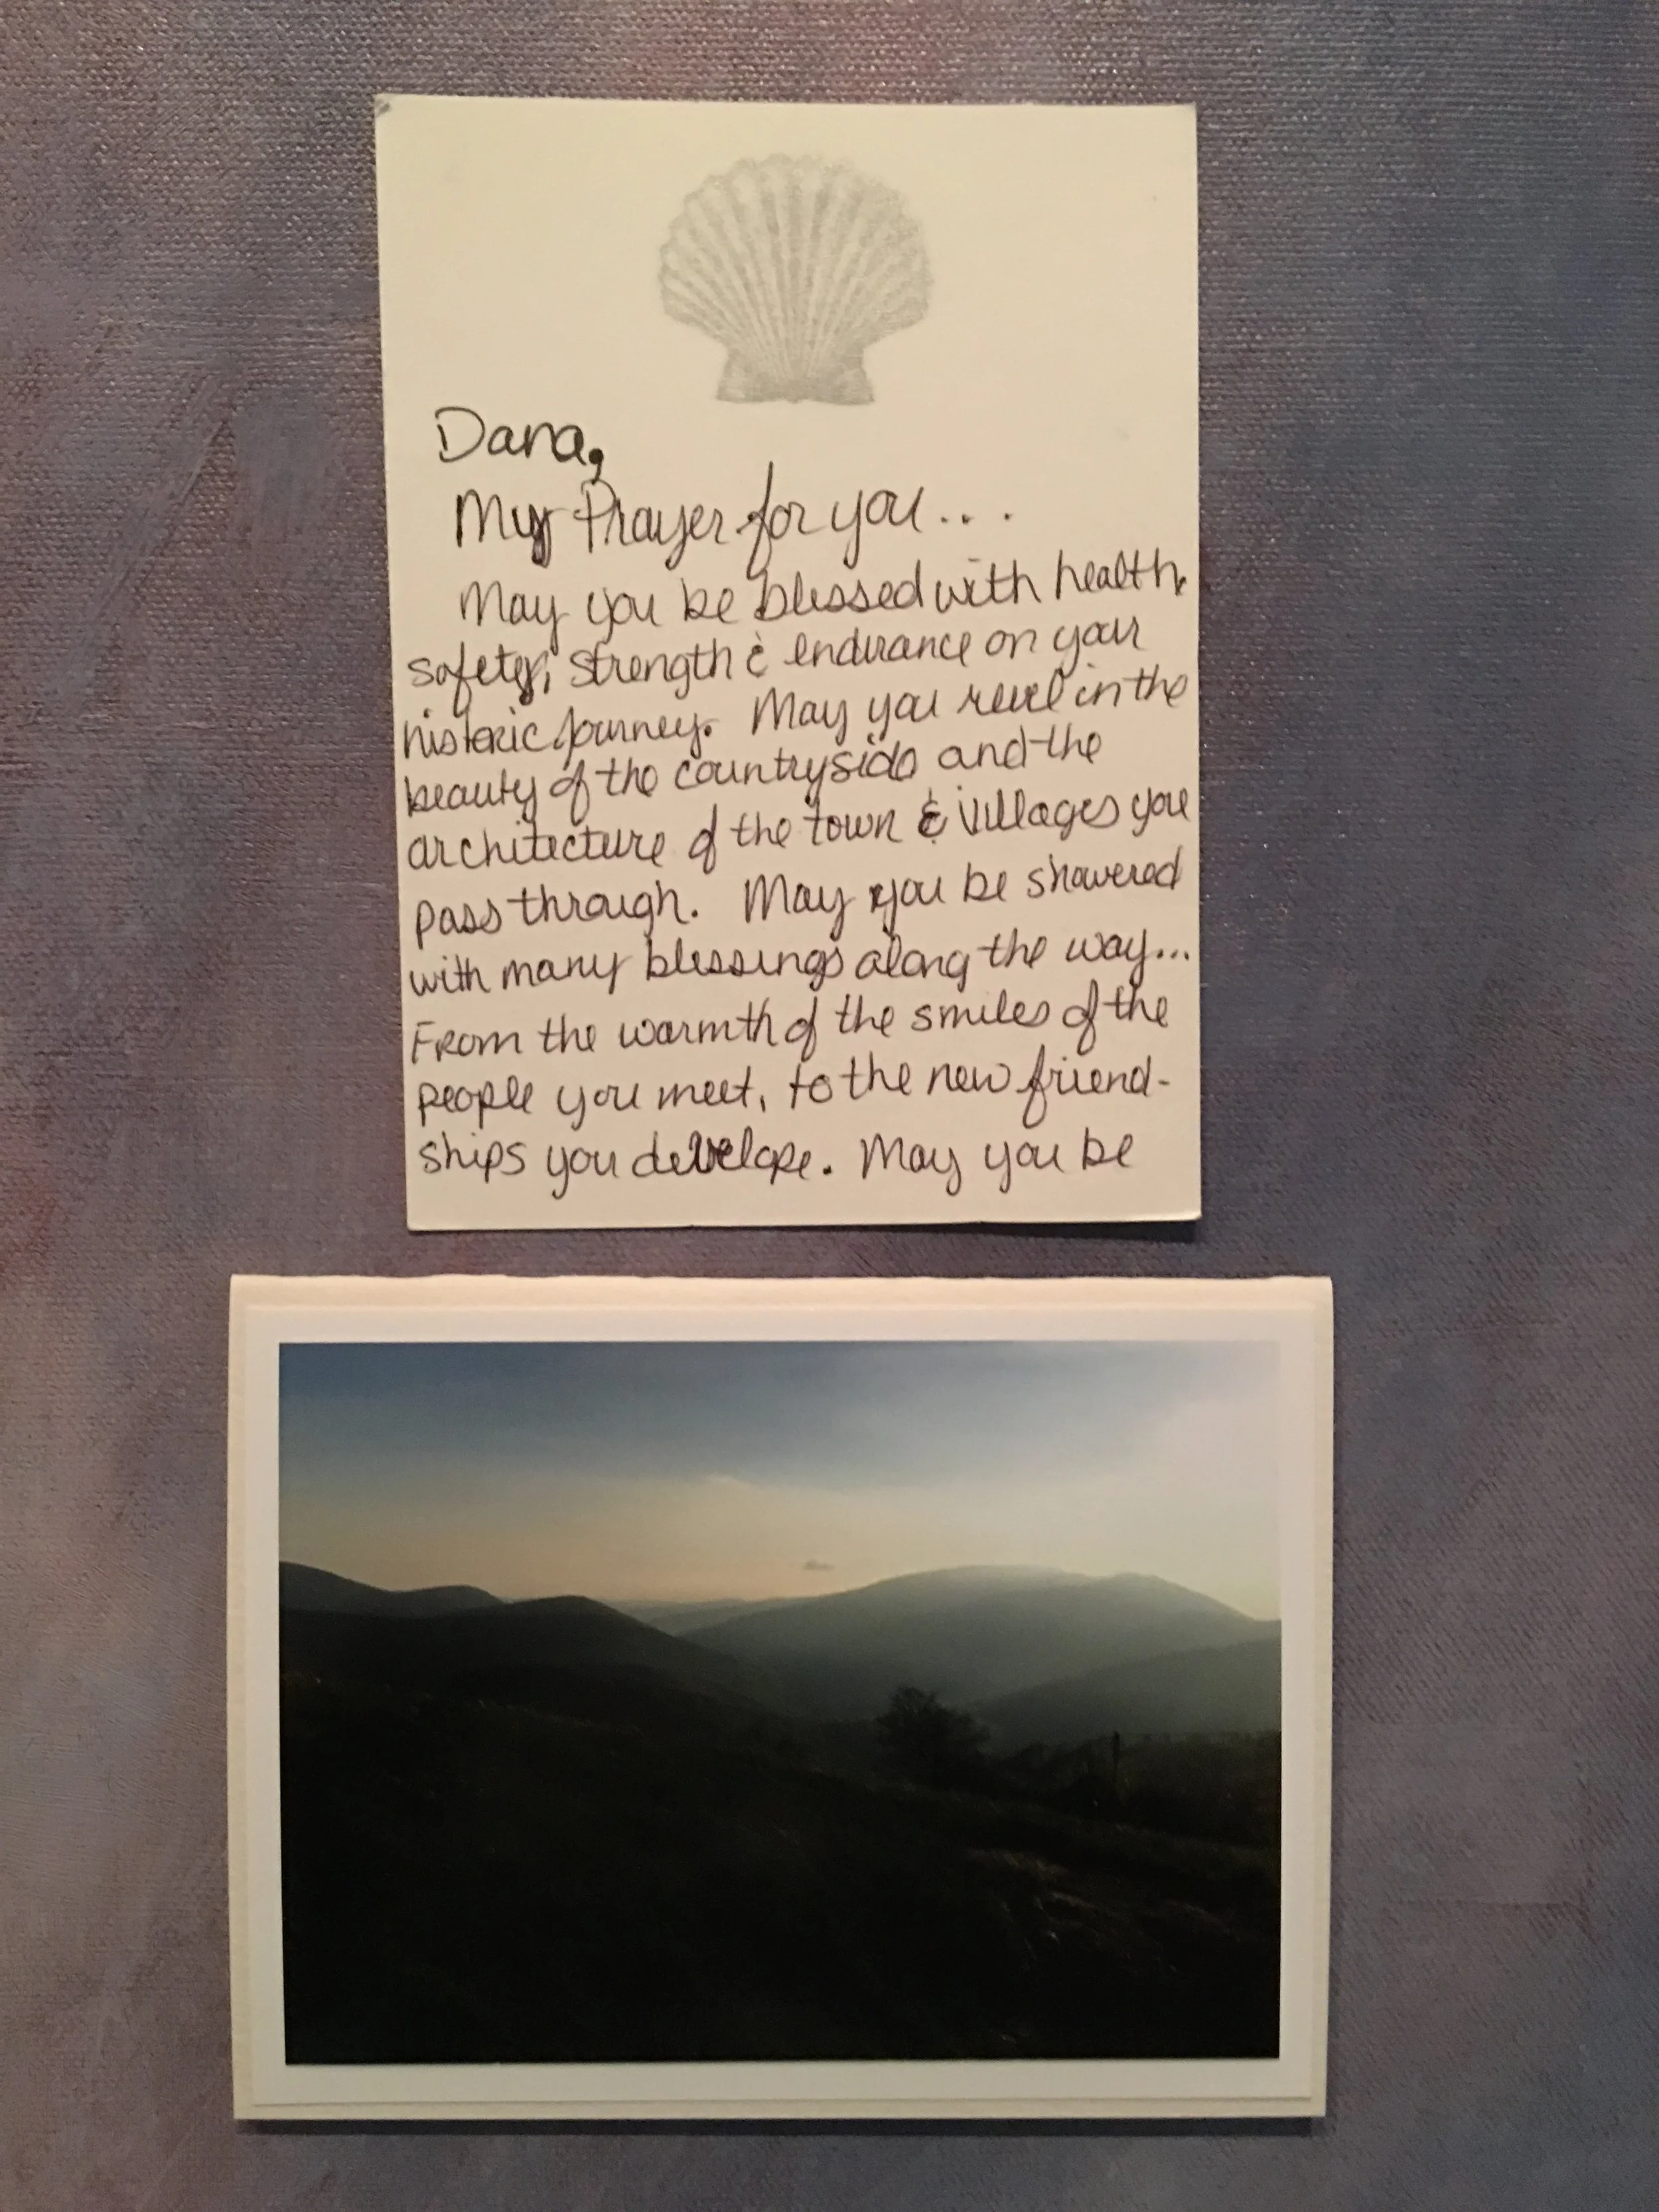 Dana,
My Prayer for you...
May you be blessed with health,
safety, strength & endurance on your
historic journey. May you revel in the
beauty of the countryside and the
architecture of the town & villages you
pass through. May you be showered
with many blessings along the way...
From the warmth of the smiles of the
people you meet, to the new friend-
ships you develope. May you be